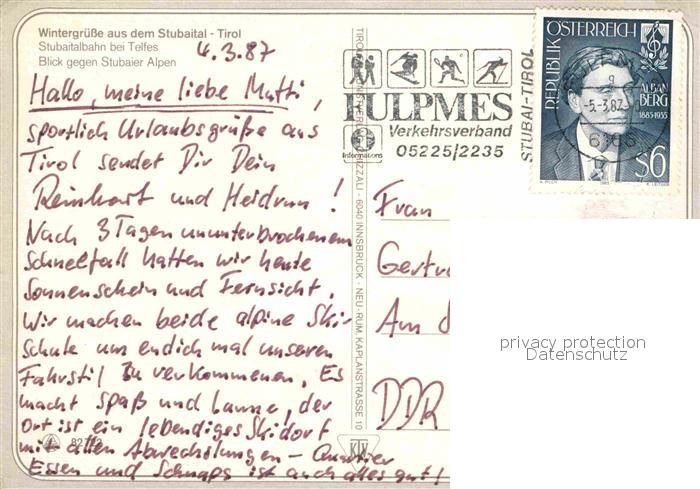 Wintergrüße aus dem Stubaital - Tirol
Stubaitalbahn bei Telfes
Blick gegen Stubaier Alpen
4.3.87
Hallo, meine liebe Mutti,
sportlich Urlaubsgrüße aus
Tirol sendet Dir Dein
Reinhart und Heidrun!
Nach 3 Tagen ununterbrochenem
Schneefall hatten wir heute
Sonnenschein und Fernsicht.
Wir machen beide alpine Ski-
schule um endlich mal unseren
Fahrstil zu vervollkommnen. Es
macht Spaß und Laune, der
Ort ist ein lebendiges Skidorf
mit allen Abwechslungen – Quartier
Essen und Schnaps ist auch alles gut!
FULPMES
Verkehrsverband
05225/2235
Informations
STUBAI-TIROL
REPUBLIK ÖSTERREICH
ALBAN
BERG
1885-1935
S6
-5-3.87-
6166
6040 INNSBRUCK - NEU-RUM, KAPLANSTRASSE 10
Frau
Gertru
Am
DDR
privacy protection
Datenschutz